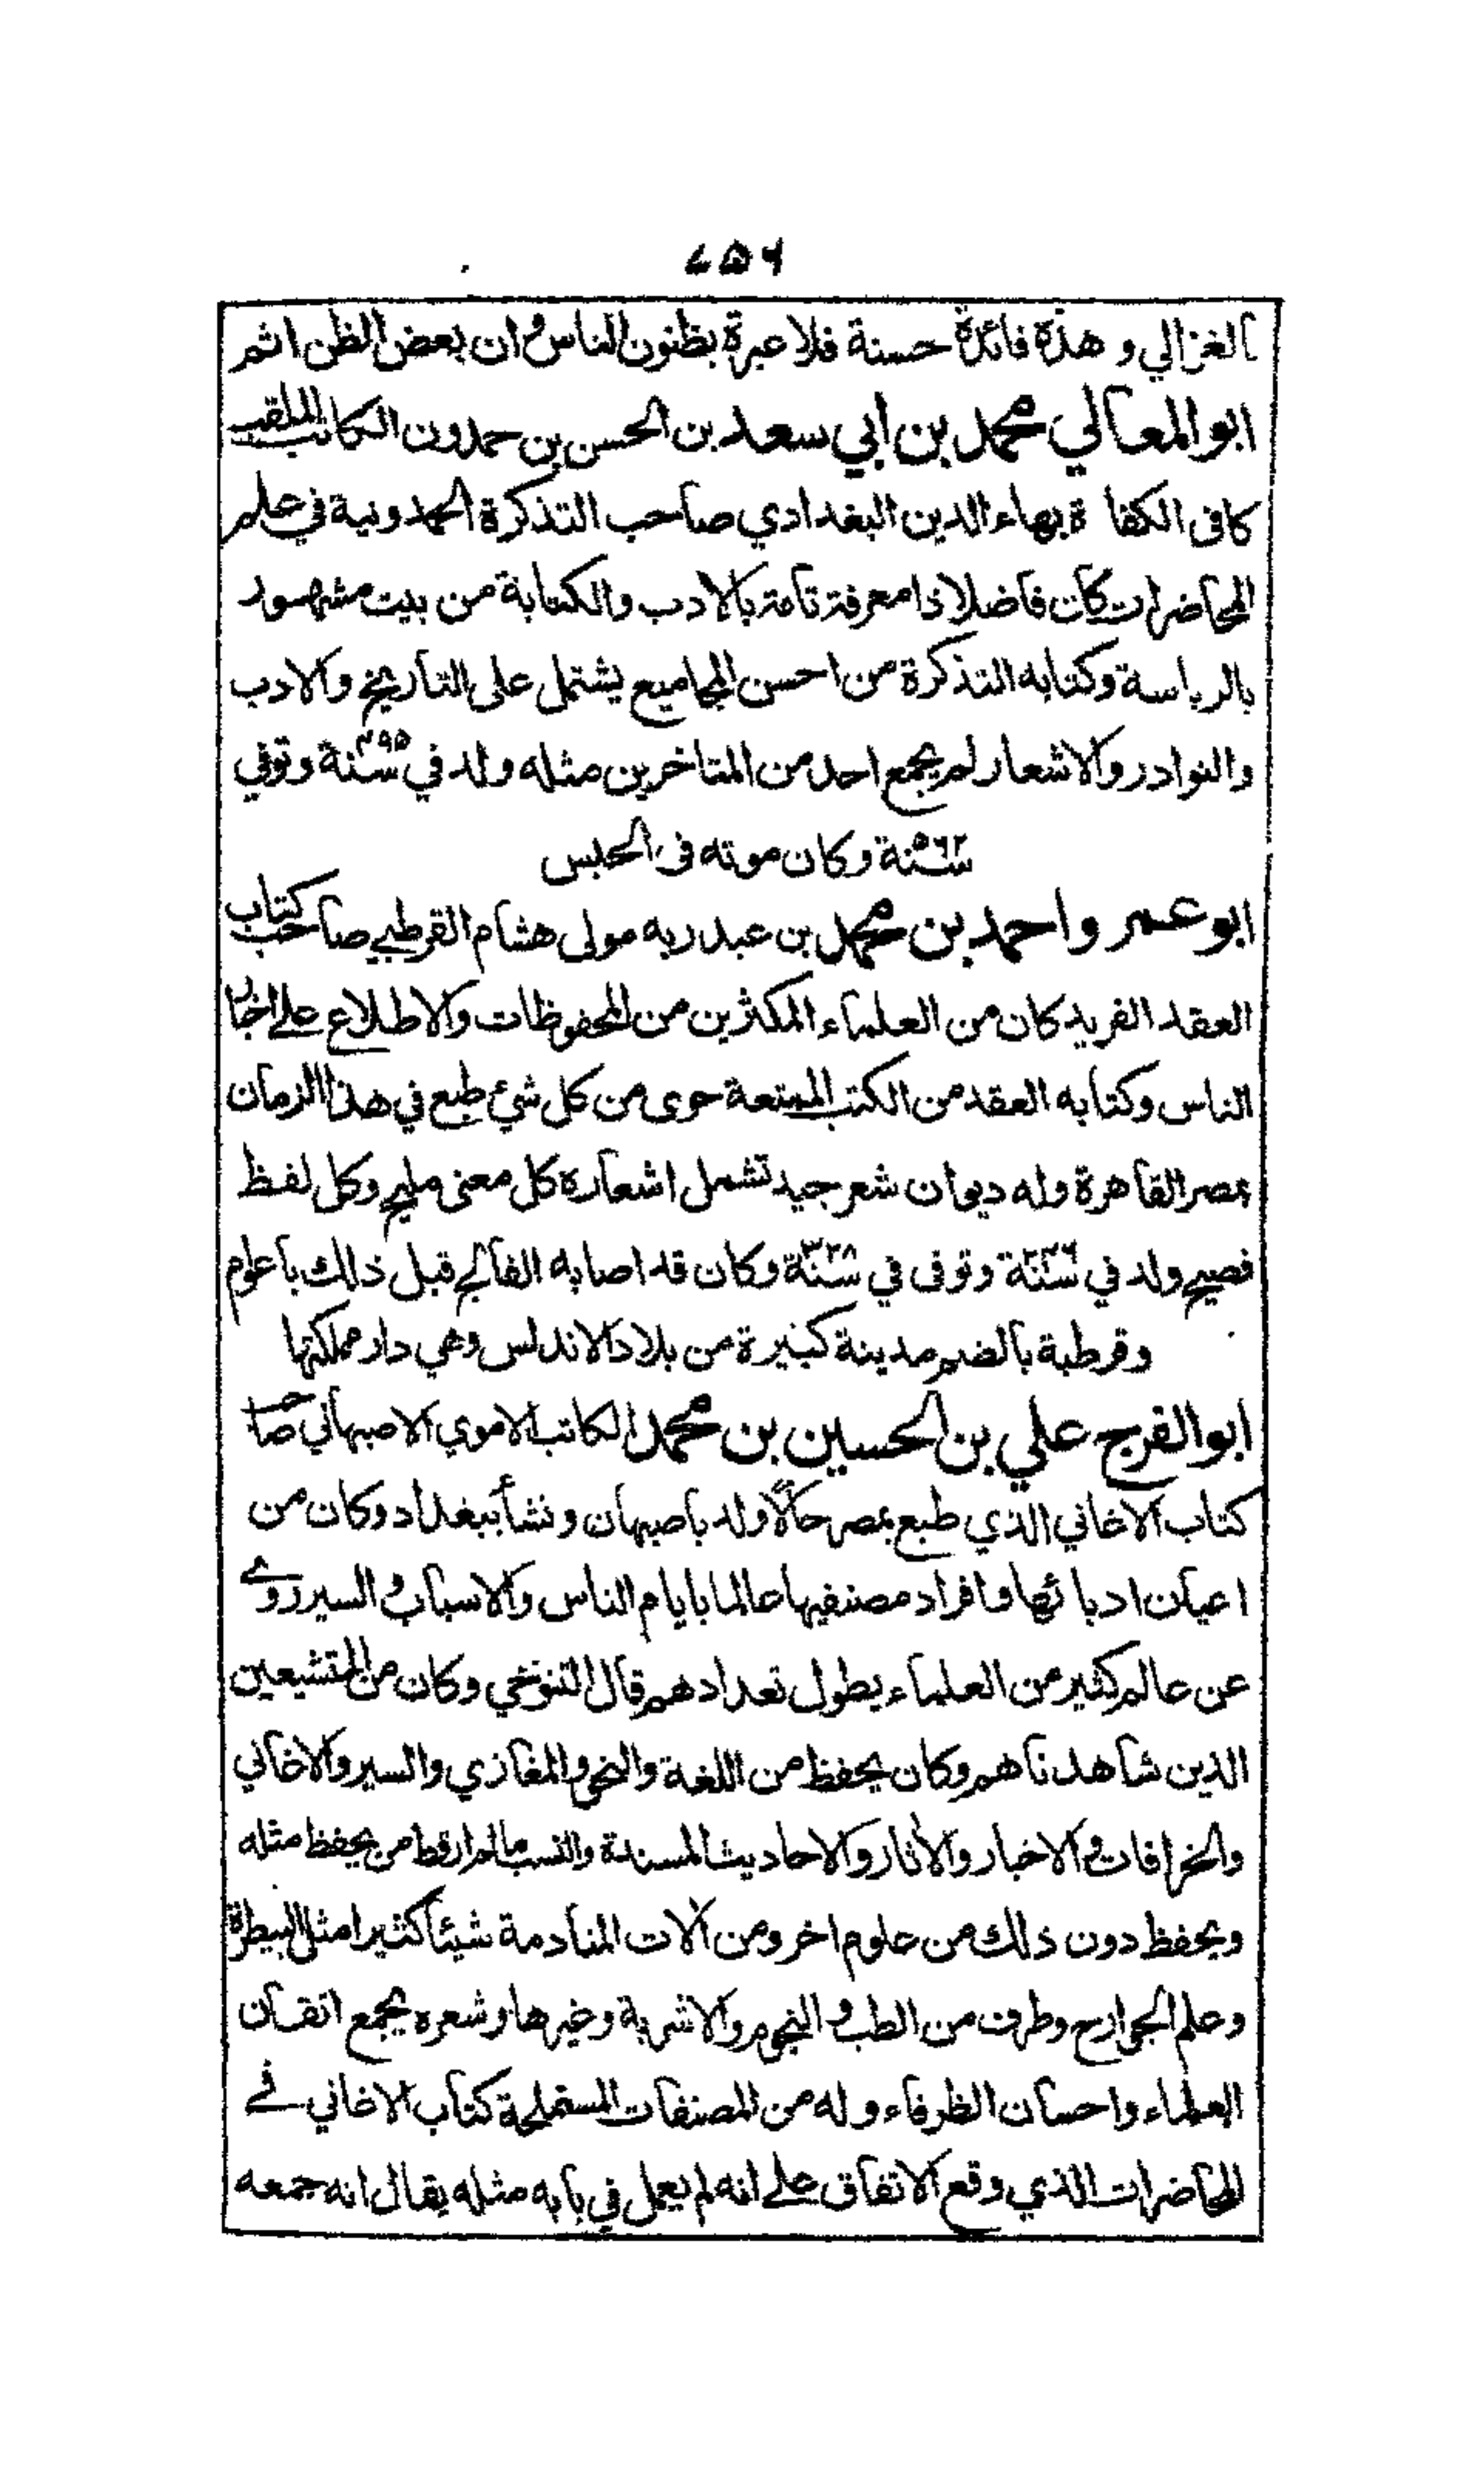 ٧٥٦
الغزالي وهذه فائدة حسنة فلا عبرة بظنون الناس وان بعض الظن اثم
ابو المعالي محمد بن أبي سعد بن الحسن بن حمدون الكاتب الملقب
كافى الكفاة بهاء الدين البغدادي صاحب التذكرة الحمدونية في علم
المحاضرات كان فاضلا ذا معرفة تامة بالادب والكتابة من بيت مشهور
بالرياسة وكتابه التذكرة من احسن المجاميع يشتمل على التاريخ والادب
والنوادر والاشعار لم يجمع احد من المتاخرين مثله ولد في سنة ٤٩٥ وتوفي
سنة ٥٦٢ وكان موته فى الحبس
ابو عمر واحمد بن محمد بن عبد ربه مولى هشام القرطبي صاحب كتاب
العقد الفريد كان من العلماء المكثرين من المحفوظات والاطلاع على اخبار
الناس وكتابه العقد من الكتب الممتعة حوى من كل شئ طبع في هذا الزمان
بمصر القاهرة وله ديوان شعر جيد تشمل اشعاره كل معنى مليح وكل لفظ
فصيح ولد في سنة ٢٤٦ وتوفى في سنة ٣٢٨ وكان قد اصابه الفالج قبل ذلك باعوام
وقرطبة بالضم مدينة كبيرة من بلاد الاندلس وهي دار مملكتها
ابو الفرج علي بن الحسين بن محمد الكاتب الاموي الاصبهاني صاحب
كتاب الاغاني الذي طبع بمصر حالا ولد باصبهان ونشأ ببغداد وكان من
اعيان ادبائها وافراد مصنفيها عالما بايام الناس والاسباب والسير روى
عن عالم كثير من العلماء يطول تعدادهم قال التنوخي وكان من المتشيعين
الذين شاهدناهم وكان يحفظ من اللغة والنحو والمغازي والسير والاغاني
والخرافات والاخبار والآثار والاحاديث المسندة والنسب ما لم ار قط من يحفظ مثله
ويحفظ دون ذلك من علوم اخر ومن آلات المنادمة شيئا كثيرا مثل البيطرة
وعلم الجوارح وطرف من الطب والنجوم والاشربة وغيرها وشعره يجمع اتقان
العلماء واحسان الظرفاء وله من المصنفات المستملحة كتاب الاغاني في
المحاضرات الذي وقع الاتفاق على انه لم يعمل في بابه مثله يقال انه جمعه